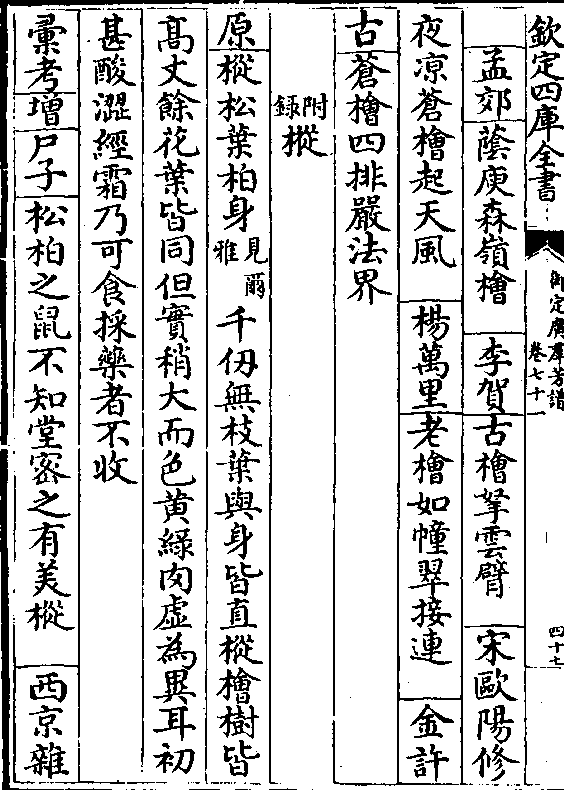 欽定四庫全書
御定廣羣芳譜
卷七十一
四十七
孟郊 蔭庾森嶺檜 李賀 古檜拏雲臂 宋歐陽修
夜凉蒼檜起天風 楊萬里 老檜如幢翠接連 金許
古 蒼檜四排嚴法界
附録 樅
原 樅松葉柏身見爾雅 千仭無枝葉與身皆直樅檜樹皆
髙丈餘花葉皆同但實稍大而色黄緑肉虛為異耳初
甚酸澀經霜乃可食採藥者不收
彚考 增 尸子 松柏之鼠不知堂密之有美樅 西京雜